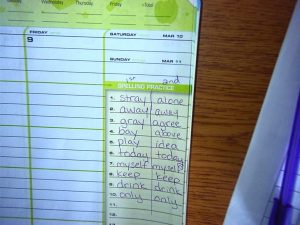 Wednesday Thursday Friday Total
FRIDAY SATURDAY MAR 10
9
SUNDAY MAR 11
1st 2nd
SPELLING PRACTICE
1. stray alone
2. away away
3. gray agree
4. bay above
5. play idea
6. today today
7. myself myself
8. keep keep
9. drink drink
10. only only
11.
12.